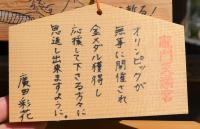 オリンピックが
無事に開催され
金メダル獲得し
応援して下さる方々に
恩返し出来ますように。
廣田彩花